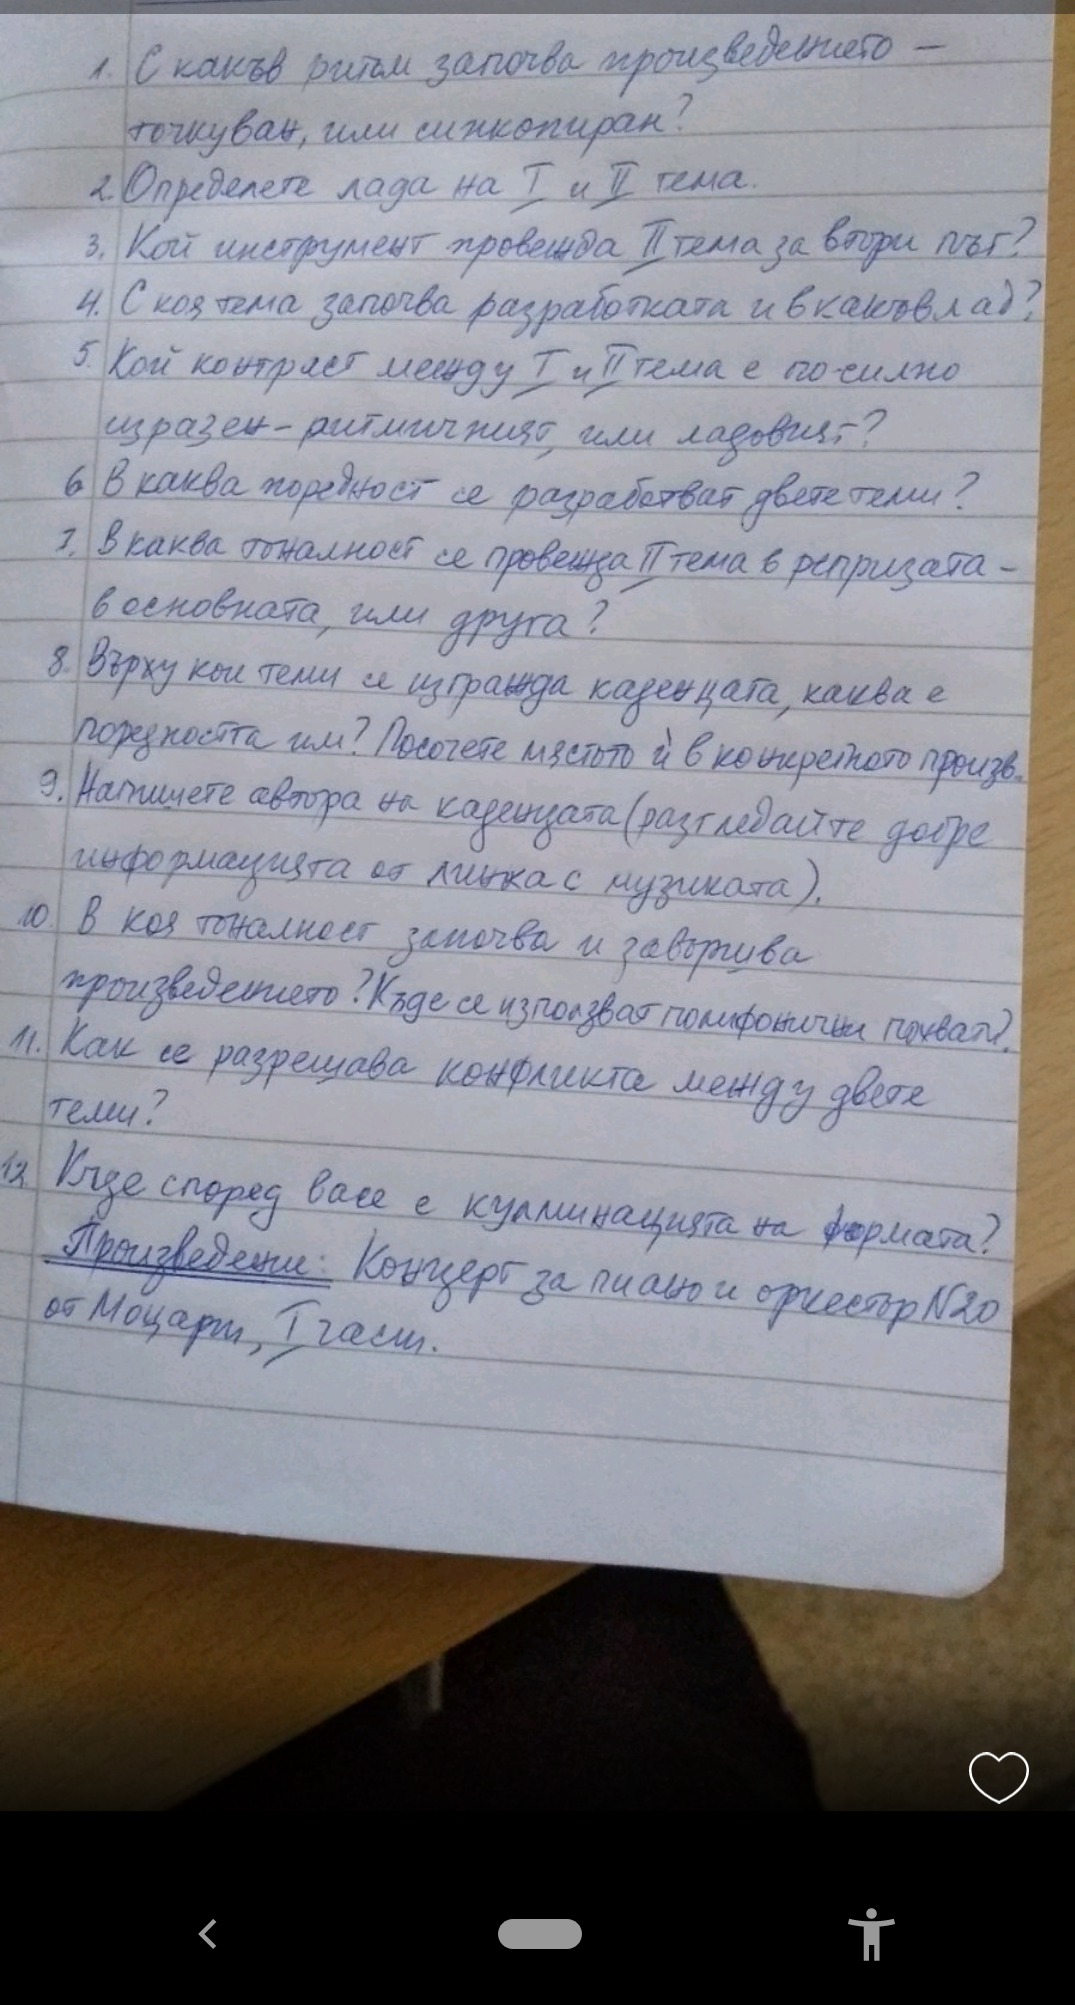 1. С какъв ритъм започва произведението –
точкуван, или синкопиран?
2. Определете лада на I и II тема.
3. Кой инструмент провежда II тема за втори път?
4. С коя тема започва разработката и в какъв лад?
5. Кой контраст между I и II тема е по-силно
изразен – ритмичният, или ладовият?
6. В каква поредност се разработват двете теми?
7. В каква тоналност се провежда II тема в репризата –
в основната, или друга?
8. Върху кои теми се изгражда каденцата, каква е
поредността им? Посочете мястото ѝ в конкретното произв.
9. Напишете автора на каденцата (разгледайте добре
информацията от линка с музиката).
10. В коя тоналност започва и завършва
произведението? Къде се използват полифонични похвати?
11. Как се разрешава конфликта между двете
теми?
12. Къде според васе е кулминацията на формата?
Произведение: Концерт за пиано и оркестър N20
от Моцарт, I част.